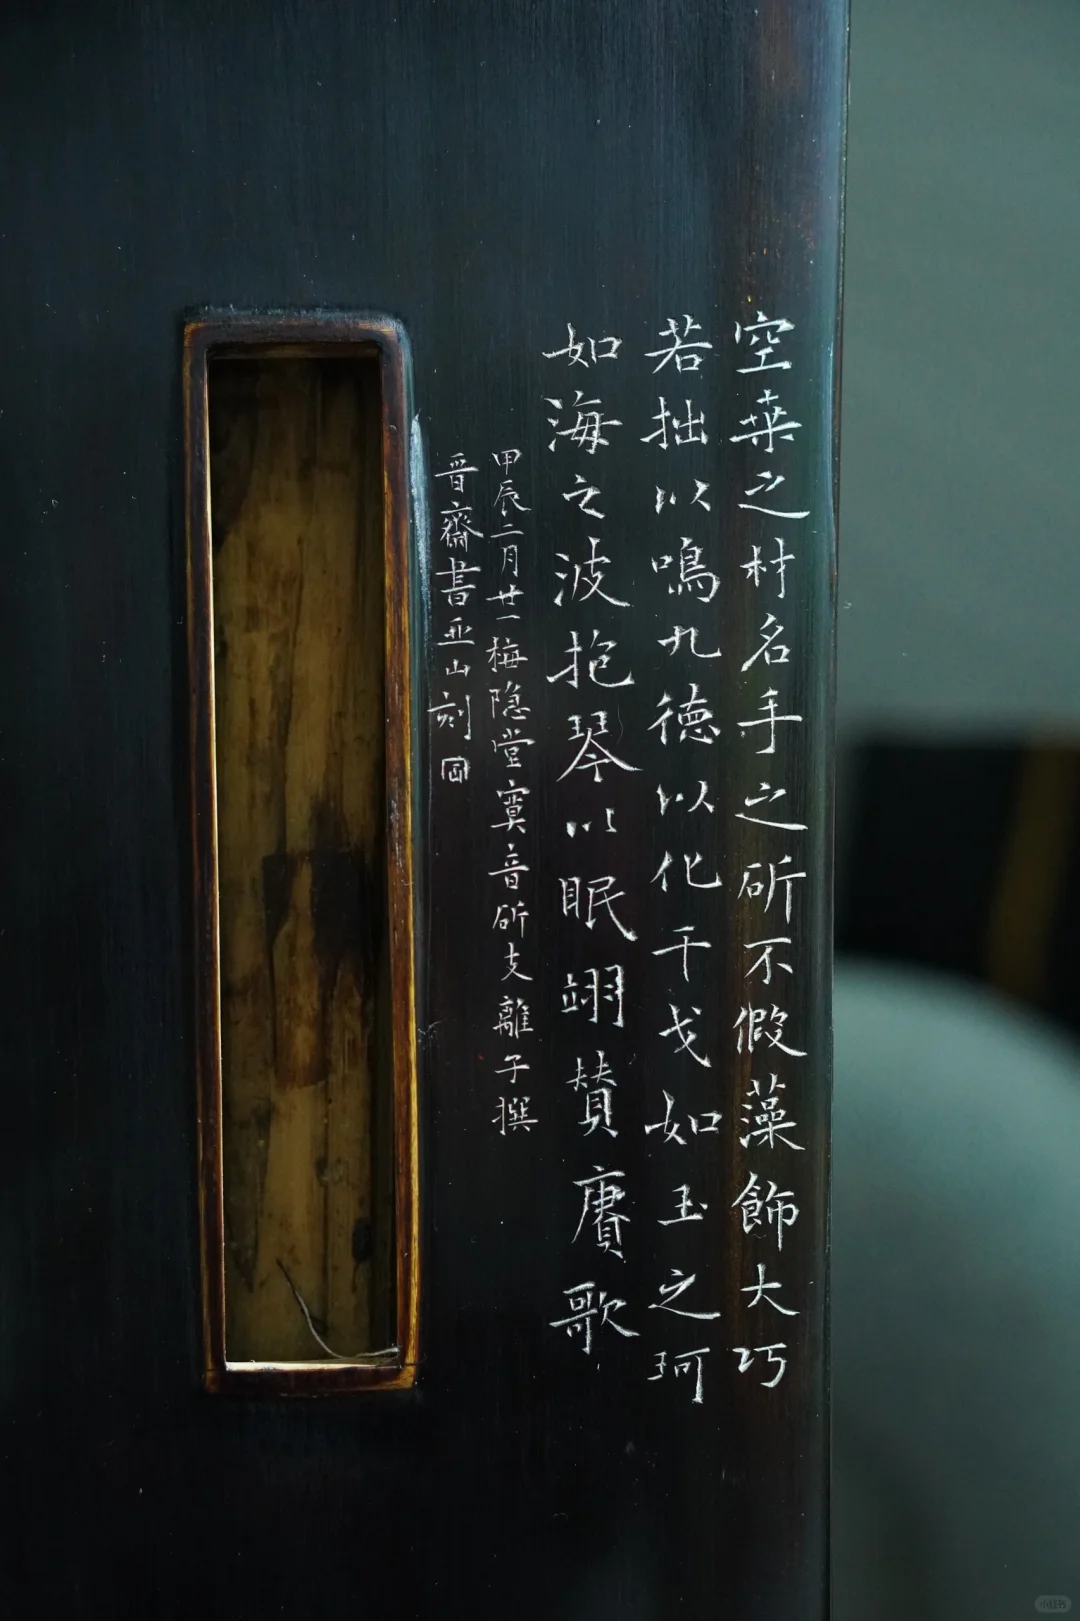 空桒之材名手之斫不假藻飾大巧
若拙以鳴九德以化干戈如玉之珂
如海之波抱琴以眠翊赞賡歌
甲辰二月廿一梅隐堂寞音斫支離子撰
晋齋書亚山刻
小红书